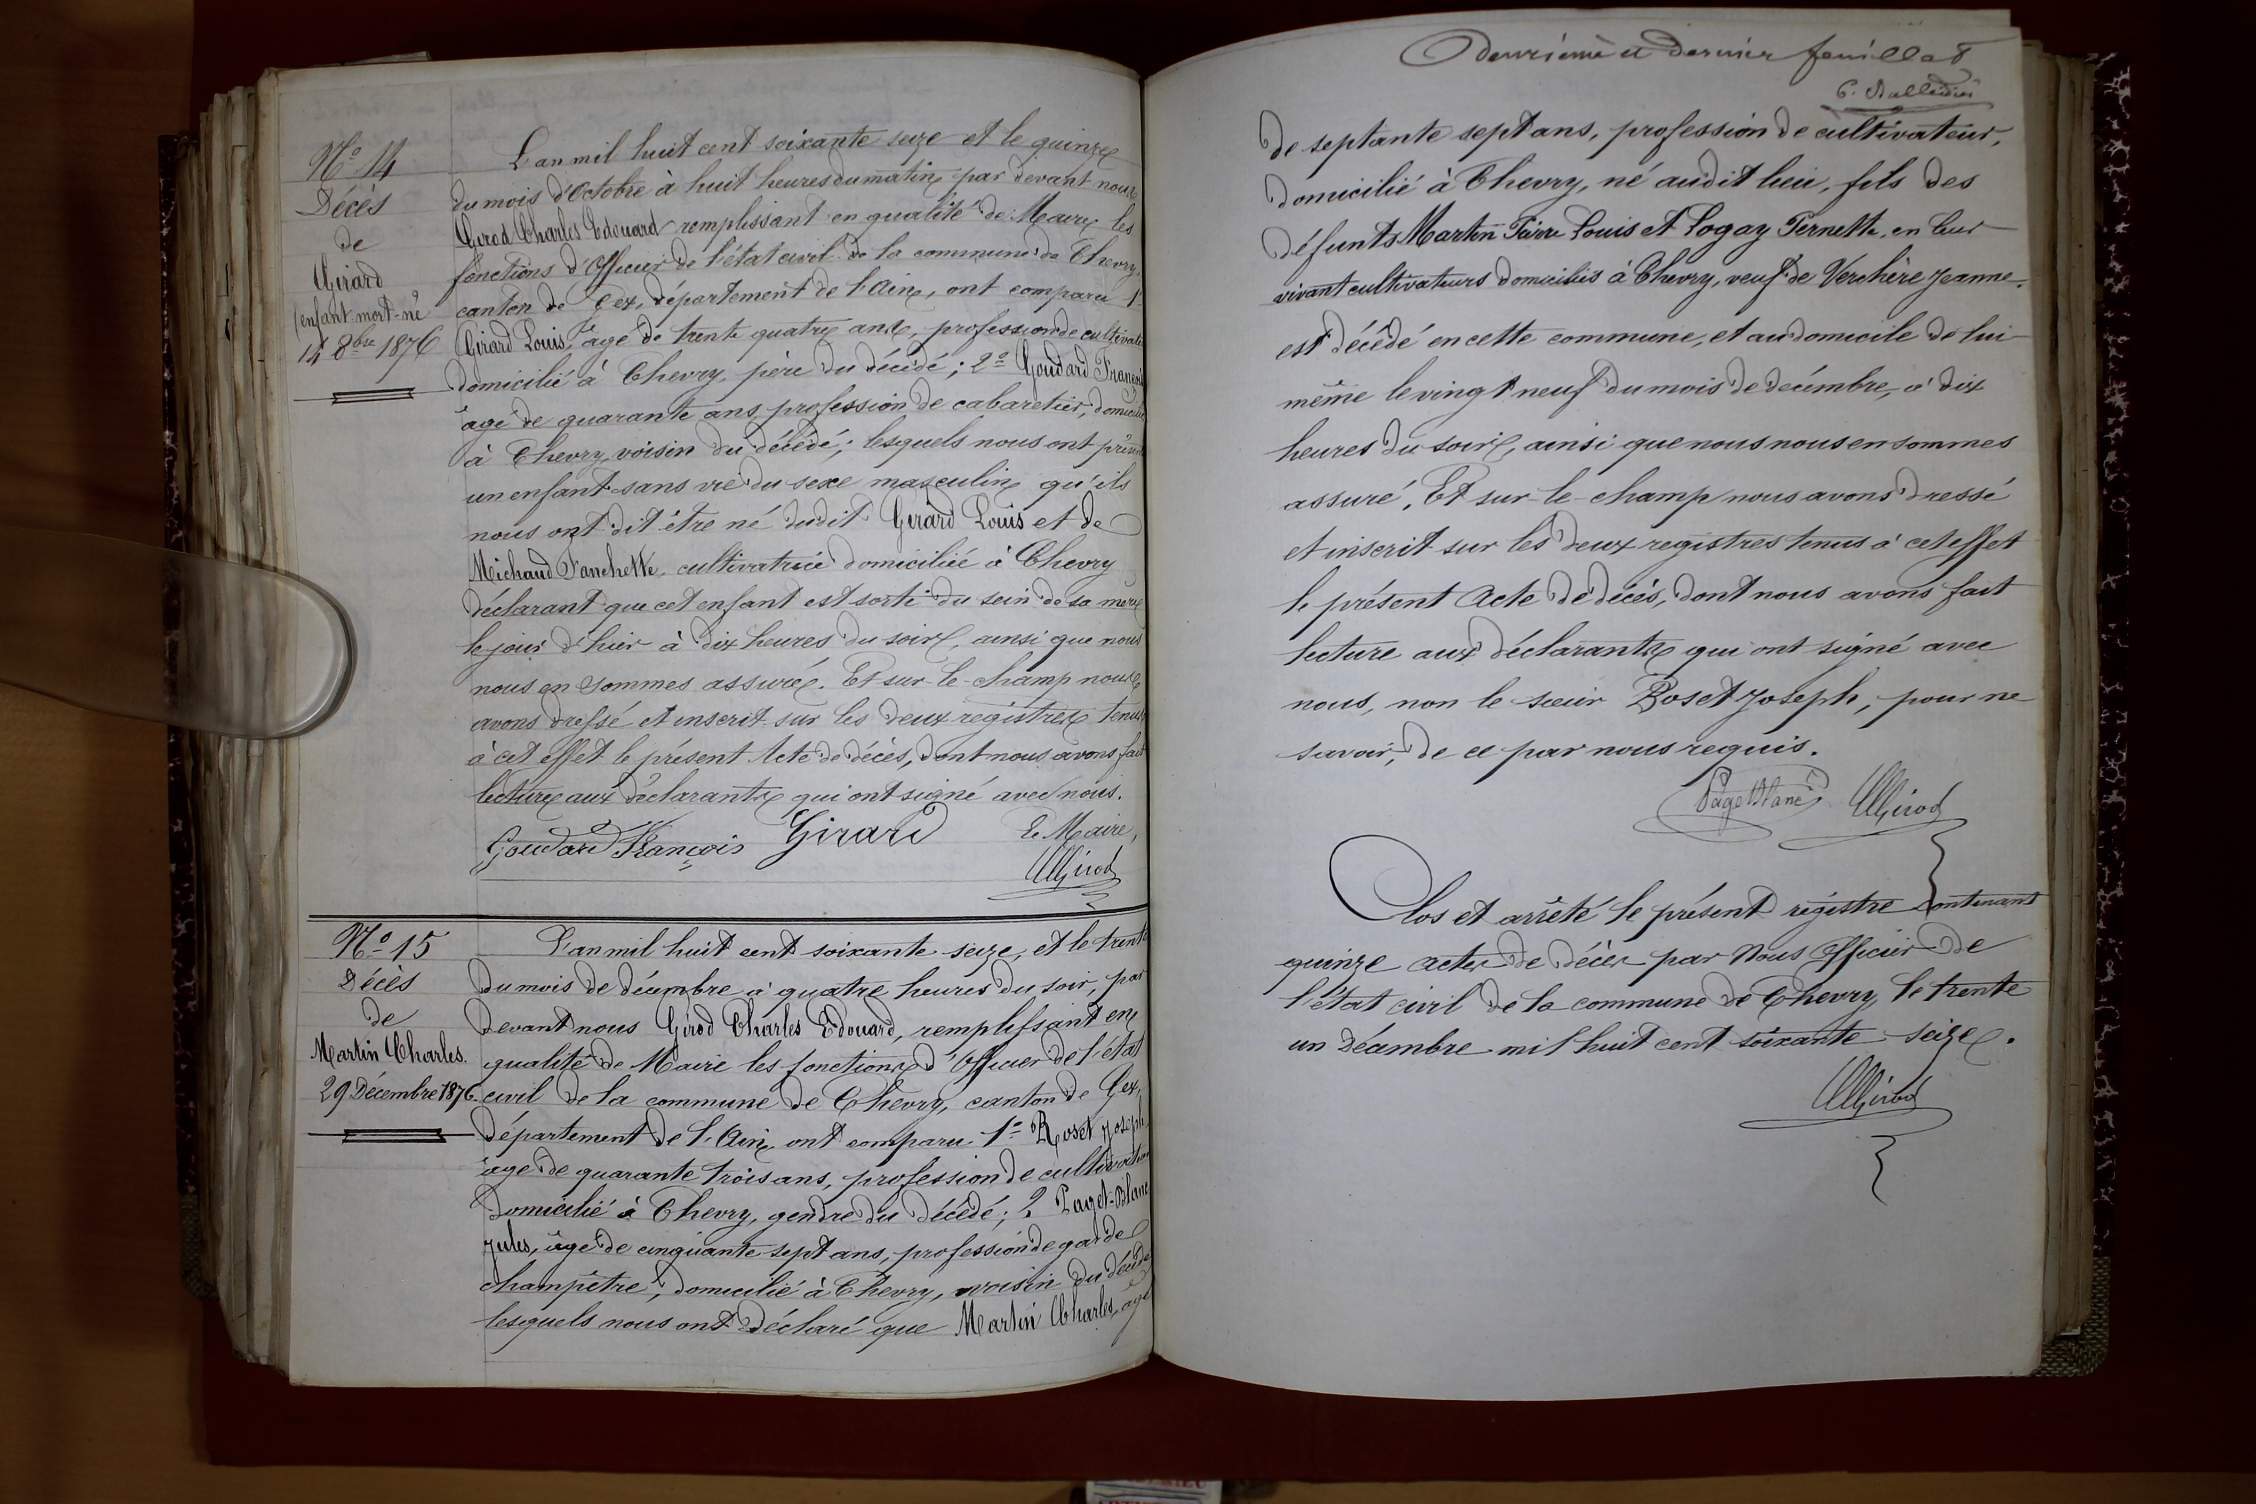 Nº 14
Décès
de
Girard
(enfant mort-né
14 8bre 1876
L'an mil huit cent soixante seize et le quinze
du mois d'Octobre à huit heures du matin par devant nous
Girod Charles Edouard remplissant en qualité de Maire les
fonctions d'Officier de l'état civil de la commune de Chevry,
canton de Gex, département de l'Ain, ont comparu 1º
Girard Louis, âgé de trente quatre ans, profession de cultivate
domicilié à Chevry, père du décédé; 2º Goudard François
âgé de quarante ans, profession de cabaretier, domicilié
à Chevry, voisin du décédé; lesquels nous ont présenté
un enfant sans vie du sexe masculin qu'ils
nous ont dit être né dudit Girard Louis et de
Michaud Fanchette, cultivatrice domiciliée à Chevry
déclarant que cet enfant est sorti du sein de sa mère
le jour d'hier à dix heures du soir, ainsi que nous
nous en sommes assuré. Et sur-le-champ nous
avons dressé et inscrit sur les deux registres tenus
à cet effet le présent Acte de décès, dont nous avons fait
lecture aux déclarants qui ont signé avec nous.
Goudard François Girard Le Maire,
Girod
Nº 15
Décès
de
Martin Charles.
29 Décembre 1876.
L'an mil huit cent soixante seize, et le trente
du mois de décembre à quatre heures du soir, par
devant nous Girod Charles Edouard, remplissant en
qualité de Maire les fonctions d'Officier de l'état
civil de la commune de Chevry, canton de Gex,
département de l'Ain ont comparu 1º Roset Joseph
âgé de quarante trois ans, profession de cultivateur
domicilié à Chevry, gendre du décédé; 2º Paget-Blanc
Jules, âgé de cinquante sept ans, profession de garde
champêtre, domicilié à Chevry, voisin du décédé
lesquels nous ont déclaré que Martin Charles, âgé
deuxième et dernier feuillet
de septante sept ans, profession de cultivateur,
domicilié à Chevry, né audit lieu, fils des
défunts Martin Pierre Louis et Logaz Pernette, en leur
vivant cultivateurs domiciliés à Chevry, veuf de Verchère Jeanne.
est décédé en cette commune, et au domicile de lui
même le vingt neuf du mois de décembre, à dix
heures du soir, ainsi que nous nous en sommes
assuré. Et sur-le-champ nous avons dressé
et inscrit sur les deux registres tenus à cet effet
le présent Acte de décès, dont nous avons fait
lecture aux déclarants qui ont signé avec
nous, non le sieur Roset Joseph, pour ne
savoir, de ce par nous requis.
Paget Blanc Girod
Clos et arrêté le présent régistre contenant
quinze actes de décès par Nous Officier de
l'état civil de la commune de Chevry, le trente
un Décembre mil huit cent soixante seize.
Girod